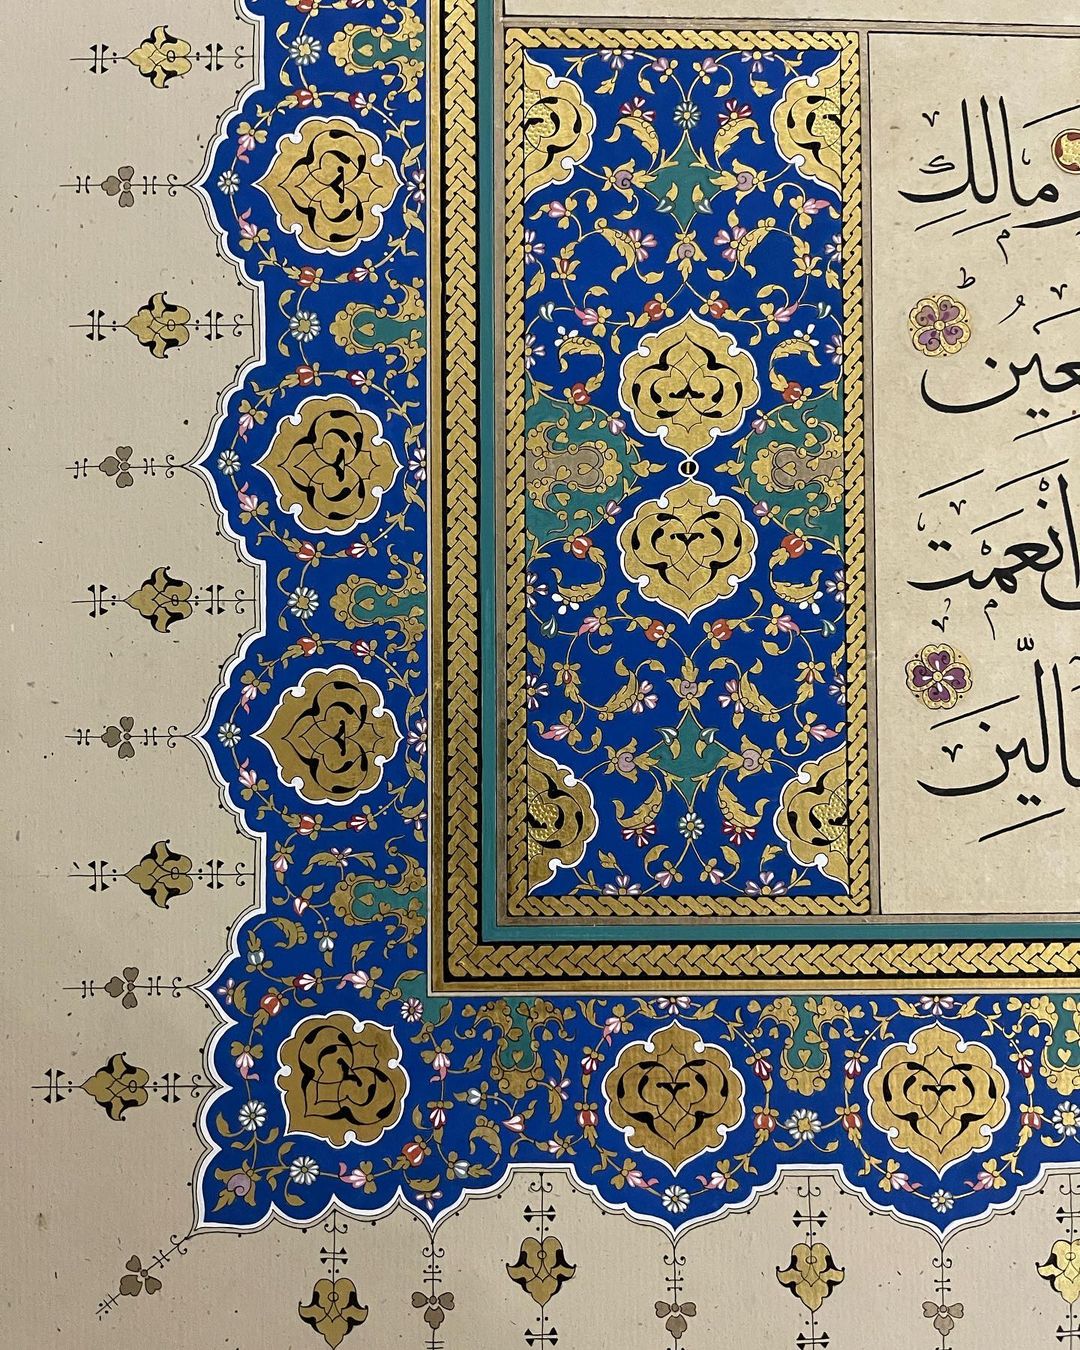 مَالِكِ
عِينُ
اَنْعَمْتَ
الّينَ